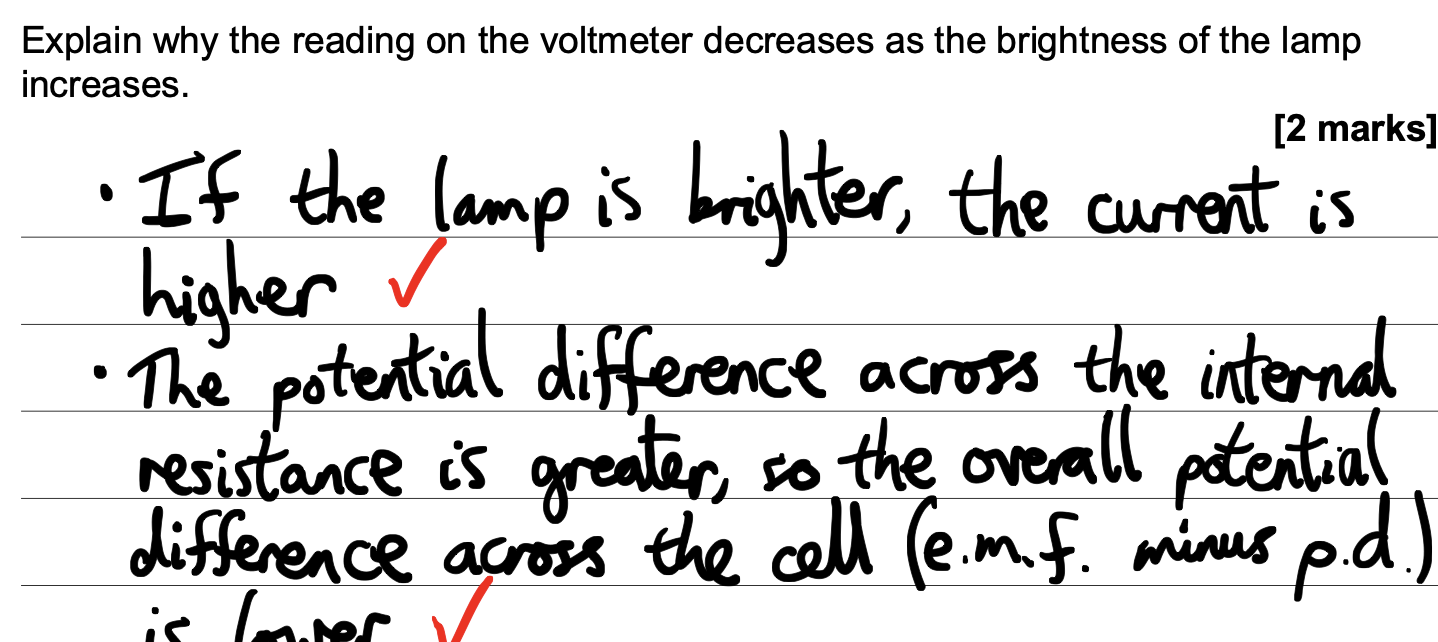 Explain why the reading on the voltmeter decreases as the brightness of the lamp
increases.
[2 marks]
• If the lamp is brighter, the current is
higher ✓
• The potential difference across the internal
resistance is greater, so the overall potential
difference across the cell (e.m.f. minus p.d.)
is lower ✓